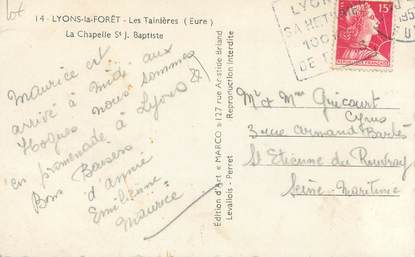 lot
14 - LYONS-la-FORÊT - Les Tainières (Eure)
La Chapelle St J. Baptiste
Maurice est
arrivé à midi aux
Hogues nous sommes
en promenade à Lyons
Bons Baisers
d'Annie
Emilienne
Maurice
Edition d'Art « MARCO » 127 rue Aristide Briand
Levallois - Perret
Reproduction Interdite
LYONS
SA HETRAIE
DE
15F
POSTES
Mr et Mme
3 rue Armand Barbès
St Etienne du Rouvray
Seine-Maritime